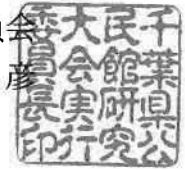 会
彦
千葉県公
民館研究
大会実行
委員長印